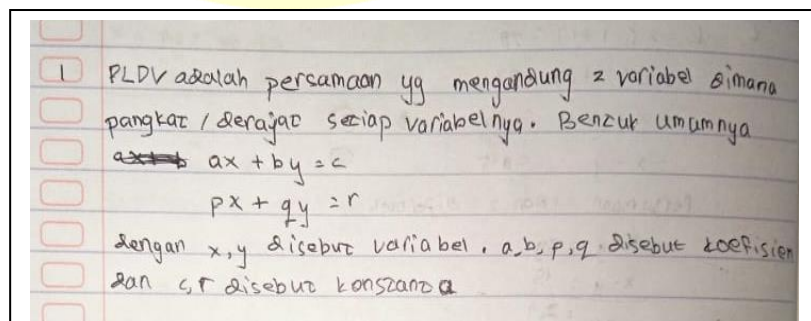 1 PLDV adalah persamaan yg mengandung 2 variabel dimana
pangkat / derajat setiap variabelnya. Bentuk umumnya
ax + by = c
px + qy = r
dengan x, y disebut variabel. a, b, p, q disebut koefisien
dan c, r disebut konstanta